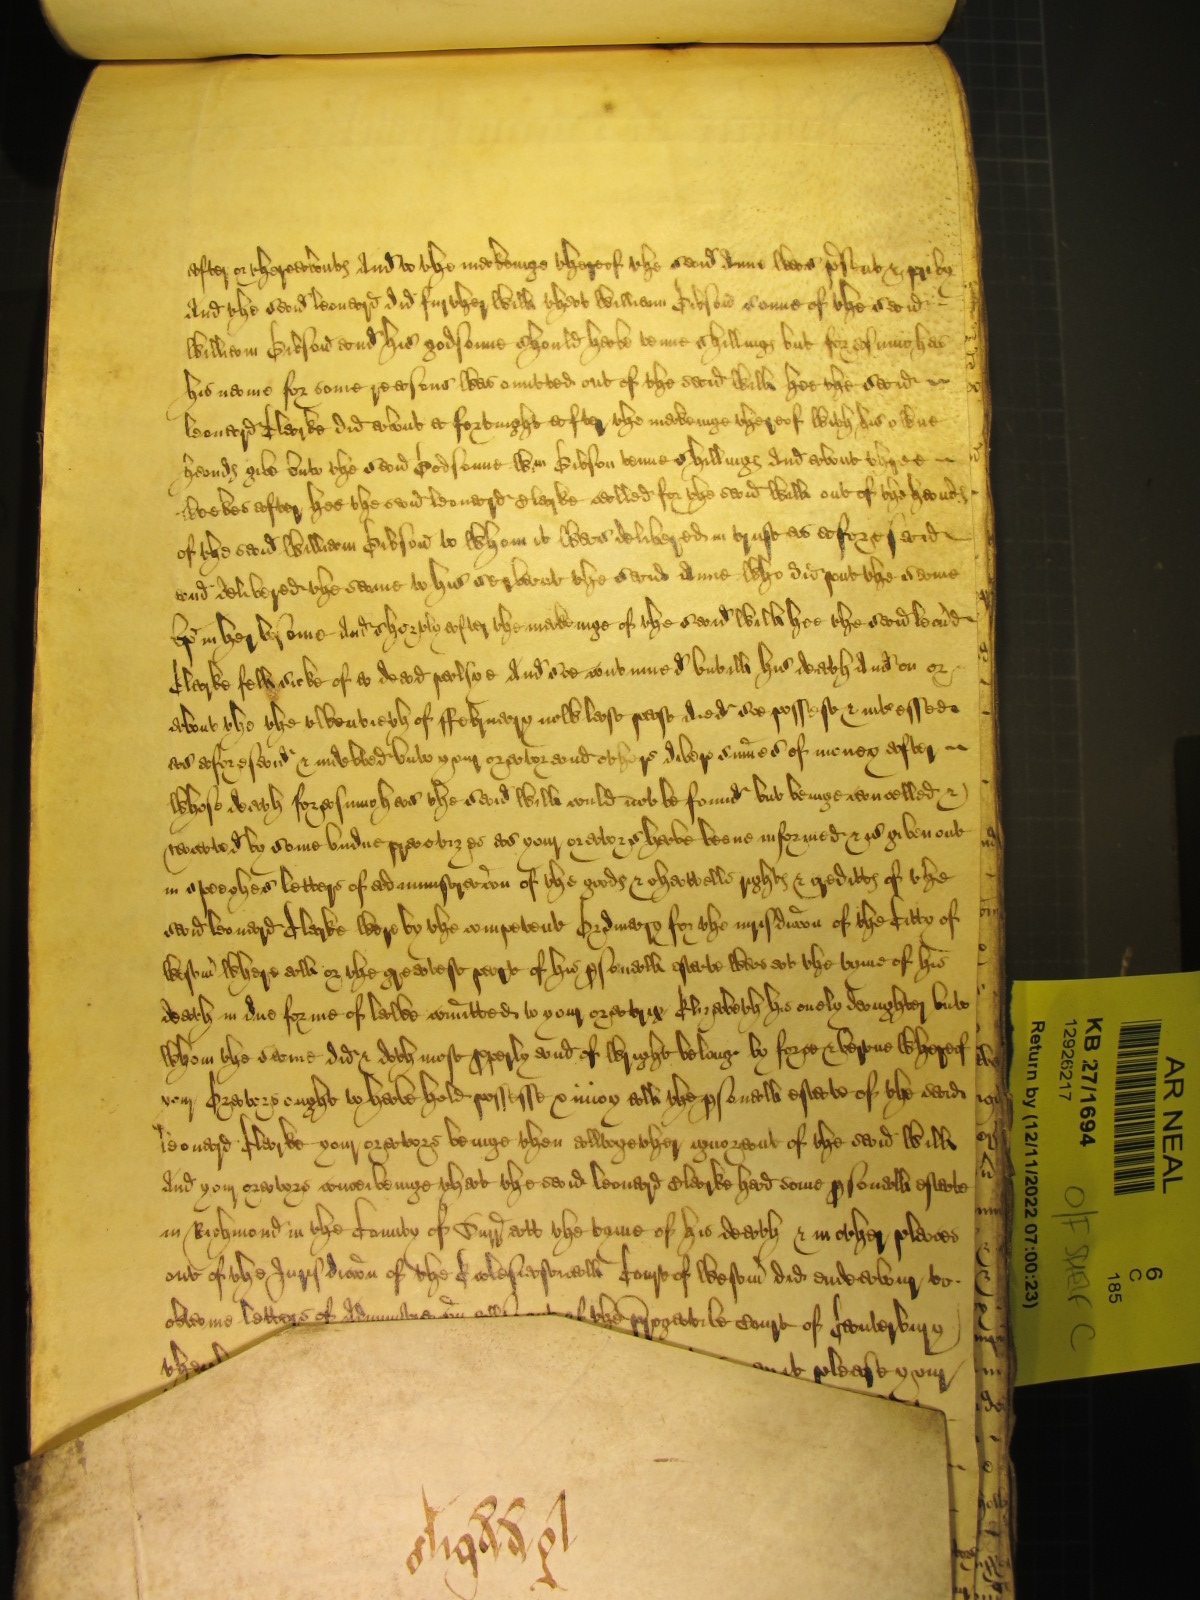 after or thereabouts And to the makeinge thereof the said Anne was p̄sent & privy
And the said Leonard did further will that William Gibson sonne of the said
William Gibson and his godsonne should have tenne shillings but forasmuch as
his name for some reasons was omitted out of the said will hee the said
Leonard Clarke did about a fortnight after the makeinge thereof with his owne
hands give unto the said Godsonne Wm Gibson tenne shillings And about three
weekes after hee the said Leonard Clarke called for the said will out of the hands
of the said William Gibson to whom it was delivered in trust as aforesaid
and delivered the same to his servant the said Anne who did put the same
up in her bosome And shortly after the makeinge of the said will hee the said Leoñd
Clarke fell sicke of a dead palsye And soe continued untill his death And on or
about the the twentieth of ffebruary now last past died soe possest & interessed
as aforesaid & indebted unto your orator and others divers sum̄es of money after
whose death forasmuch as the said will could not be found but beinge cancelled &
by some undue practizes as your orators have beene informed & is given out
in speeches letters of administrac̄on of the goods & chattells rights & creditts of the
said Leonard Clarke were by the competent Ordinary for the jurisdicc̄on of the Citty of
Westm̄ where all or the greatest part of his p̄sonall estate was at the tyme of his
death in due forme of lawe com̄itted to your oratrix Elizabeth his onely daughter unto
whom the same did & doth most p̄perly and of wright belonge by force & vertue whereof
your Orators ought to have hold possesse & injoy all the p̄sonall estate of the said
Leonard Clarke your orators beinge then alltogether ignorant of the said will
And your orators conceiveinge that the said Leonard Clarke had some p̄sonall estate
in Richmond in the County of Surr̄ att the tyme of his death & in other places
out of the Jurisdicc̄on of the Ecclesiasticall Court of Westm̄ did endeavour to
obtaine letters of Administrac̄on of the p̄rogative Court of Canterbury
it please your
AR NEAL
KB 27/1694
12926217
Return by (12/11/2022 07:00:23)
6
C
185
Off Shelf C